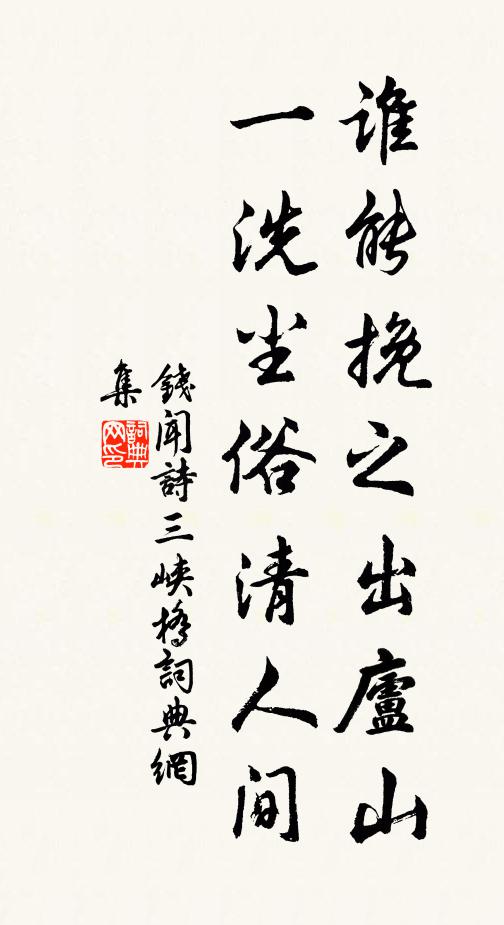 誰能挽之出廬山
一洗尘俗清人间
錢聞詩三峽橋詞典網
集
詞典
网印